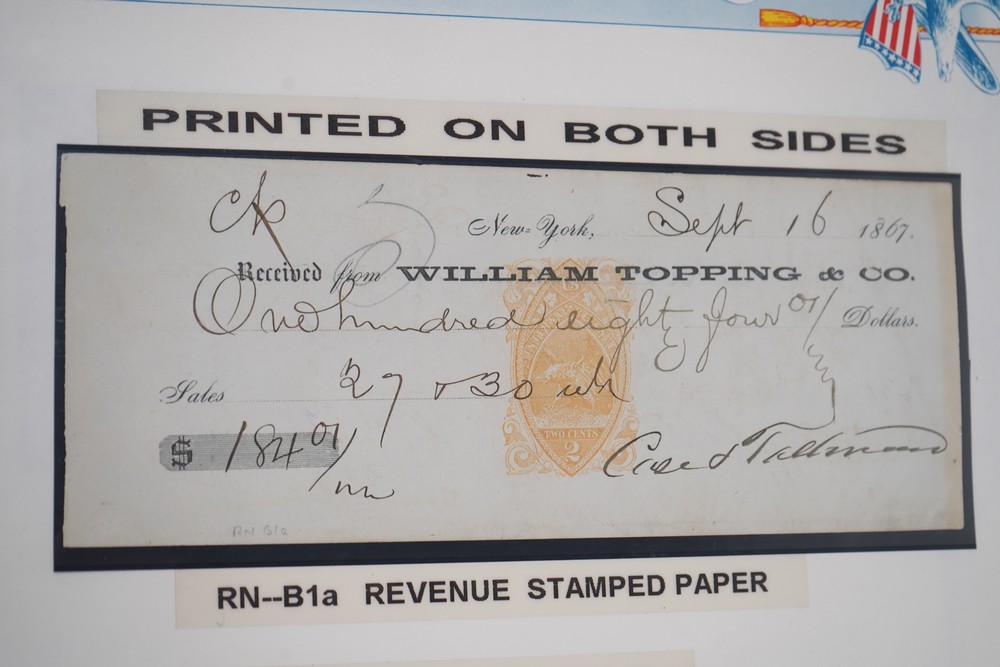 PRINTED ON BOTH SIDES
Ck
New=York, Sept 16 1867.
Received from WILLIAM TOPPING & CO.
One hundred eighty four 01/ Dollars.
Sales 29 & 30 ult
$ 184 01/
TWO CENTS
2
Case & Tallman
RN B1a
RN--B1a REVENUE STAMPED PAPER